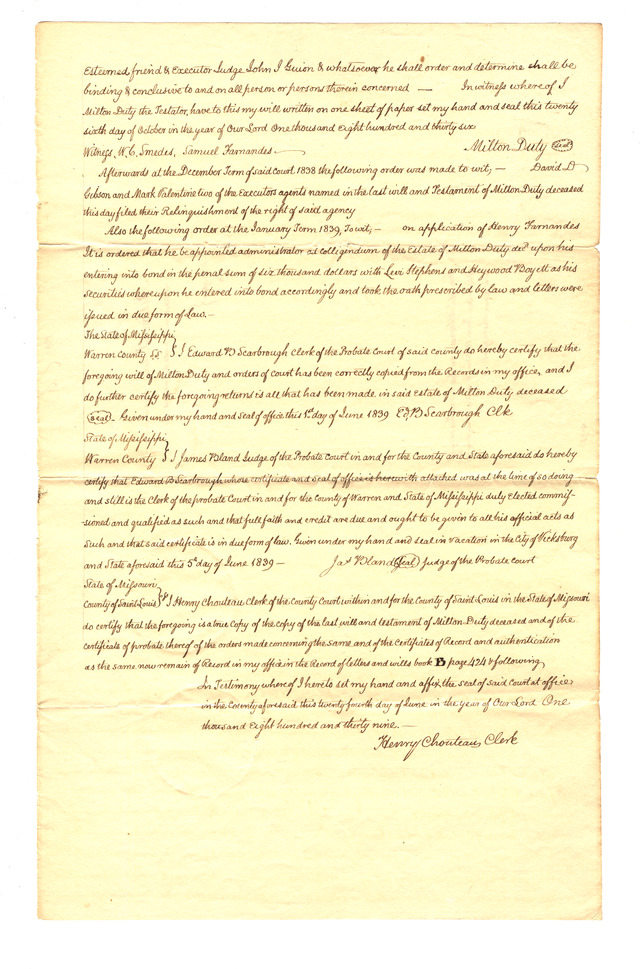 Esteemed friend & Executor Judge John I Guion & whatsoever he shall order and determine shall be
binding & conclusive to and on all person or persons therein concerned — In witness where of I
Milton Duty the Testator, have to this my will written on one sheet of paper set my hand and seal this twenty
sixth day of October in the year of Our Lord One thousand eight hundred and thirty six
Witness, W. C. Smedes, Samuel Farnandes — Milton Duty (Seal)
Afterwards at the December Term of said court 1838 the following order was made to wit; — David D
Gibson and Mark Valentine two of the Executors agents named in the last will and Testament of Milton Duty deceased
this day filed their Relinquishment of the right of said agency
Also the following order at the January Term 1839, To wit; — on application of Henry Farnandes
It is ordered that he be appointed administrator ad colligendum of the Estate of Milton Duty decd upon his
entering into bond in the penal sum of six thousand dollars with Levi Stephens and Heywood Boyett as his
Securities where upon he entered into bond accordingly and took the oath prescribed by law and letters were
issued in due form of Law. —
The State of Missisippi
Warren County ss } I Edward B Scarbrough Clerk of the Probate Court of said county do hereby certify that the
foregoing will of Milton Duty and orders of Court has been correctly copied from the Records in my office, and I
do further certify the foregoing returns is all that has been made in said Estate of Milton Duty deceased
(Seal) Given under my hand and Seal of office this 1st day of June 1839 Ed B Scarbrough Clk
State of Missisippi
Warren County } I James Bland Judge of the Probate Court in and for the County and State aforesaid do hereby
certify that Edward B Scarbrough whose certificate and Seal of office is herewith attached was at the time of so doing
and still is the Clerk of the probate Court in and for the county of Warren and State of Missisippi duly Elected commis-
sioned and qualified as such and that full faith and credit are due and ought to be given to all his official acts as
Such and that said certificate is in due form of law. Given under my hand and seal in vacation in the City of Vicksburg
and State aforesaid this 5th day of June 1839 — Jas Bland (Seal) Judge of the Probate Court
State of Missouri
County of Saint Louis } I Henry Chouteau Clerk of the County Court within and for the County of Saint Louis in the State of Missouri
do certify that the foregoing is a true Copy of the copy of the last will and testament of Milton Duty deceased and of the
certificate of probate thereof of the orders made concerning the same and of the Certificates of Record and authentication
as the same now remain of Record in my office in the Record of letters and wills book B page 424 & following
In Testimony where of I hereto set my hand and affix the seal of said Court at office
in the County aforesaid this twenty fourth day of June in the year of Our Lord One
thousand Eight hundred and thirty nine. —
Henry Chouteau Clerk